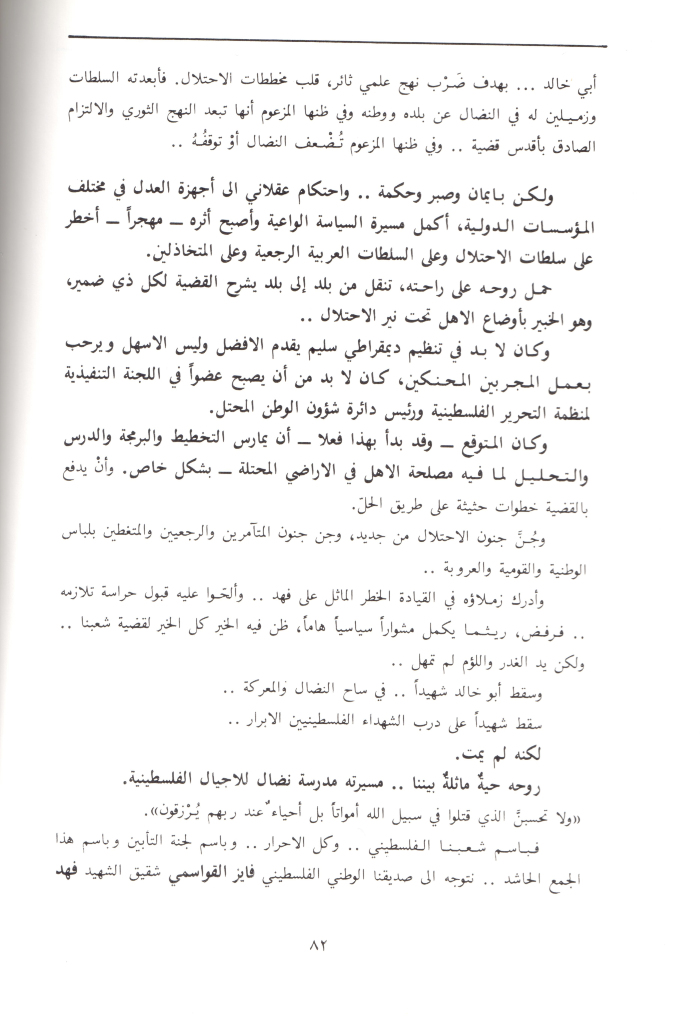 أبي خالد ... بهدف ضَرْب نهج علمي ثائر، قلب مخططات الاحتلال. فأبعدته السلطات
وزميلين له في النضال عن بلده ووطنه وفي ظنها المزعوم أنها تبعد النهج الثوري والالتزام
الصادق بأقدس قضية .. وفي ظنها المزعوم تُضْعف النضال أوْ توقفُهُ ..
ولكن بايمان وصبر وحكمة .. واحتكام عقلاني الى أجهزة العدل في مختلف
المؤسسات الدولية، أكمل مسيرة السياسة الواعية وأصبح أثره ــ مهجراً ــ أخطر
على سلطات الاحتلال وعلى السلطات العربية الرجعية وعلى المتخاذلين.
حمل روحه على راحته، تنقل من بلد إلى بلد يشرح القضية لكل ذي ضمير،
وهو الخبير بأوضاع الاهل تحت نير الاحتلال ..
وكان لا بد في تنظيم ديمقراطي سليم يقدم الافضل وليس الاسهل ويرحب
بعمل المجربين المحنكين، كان لا بد من أن يصبح عضواً في اللجنة التنفيذية
لمنظمة التحرير الفلسطينية ورئيس دائرة شؤون الوطن المحتل.
وكان المتوقع ــ وقد بدأ بهذا فعلا ــ أن يمارس التخطيط والبرمجة والدرس
والتحليل لما فيه مصلحة الاهل في الاراضي المحتلة ــ بشكل خاص. وأنْ يدفع
بالقضية خطوات حثيثة على طريق الحلّ.
وجُنَّ جنون الاحتلال من جديد، وجن جنون المتآمرين والرجعيين والمتغطين بلباس
الوطنية والقومية والعروبة ..
وأدرك زملاؤه في القيادة الخطر الماثل على فهد .. وألحّوا عليه قبول حراسة تلازمه
.. فرفض، ريثما يكمل مشواراً سياسياً هاماً، ظن فيه الخير كل الخير لقضية شعبنا ..
ولكن يد الغدر واللؤم لم تمهل ..
وسقط أبو خالد شهيداً .. في ساح النضال والمعركة ..
سقط شهيداً على درب الشهداء الفلسطينيين الابرار ..
لكنه لم يمت.
روحه حيةٌ ماثلةٌ بيننا .. مسيرته مدرسة نضال للاجيال الفلسطينية.
«ولا تحسبنَّ الذي قتلوا في سبيل الله أمواتاً بل أحياءٌ عند ربهم يُرْزقون».
فباسم شعبنا الفلسطيني .. وكل الاحرار .. وباسم لجنة التأبين وباسم هذا
الجمع الحاشد .. نتوجه الى صديقنا الوطني الفلسطيني فايز القواسمي شقيق الشهيد فهد
٨٢